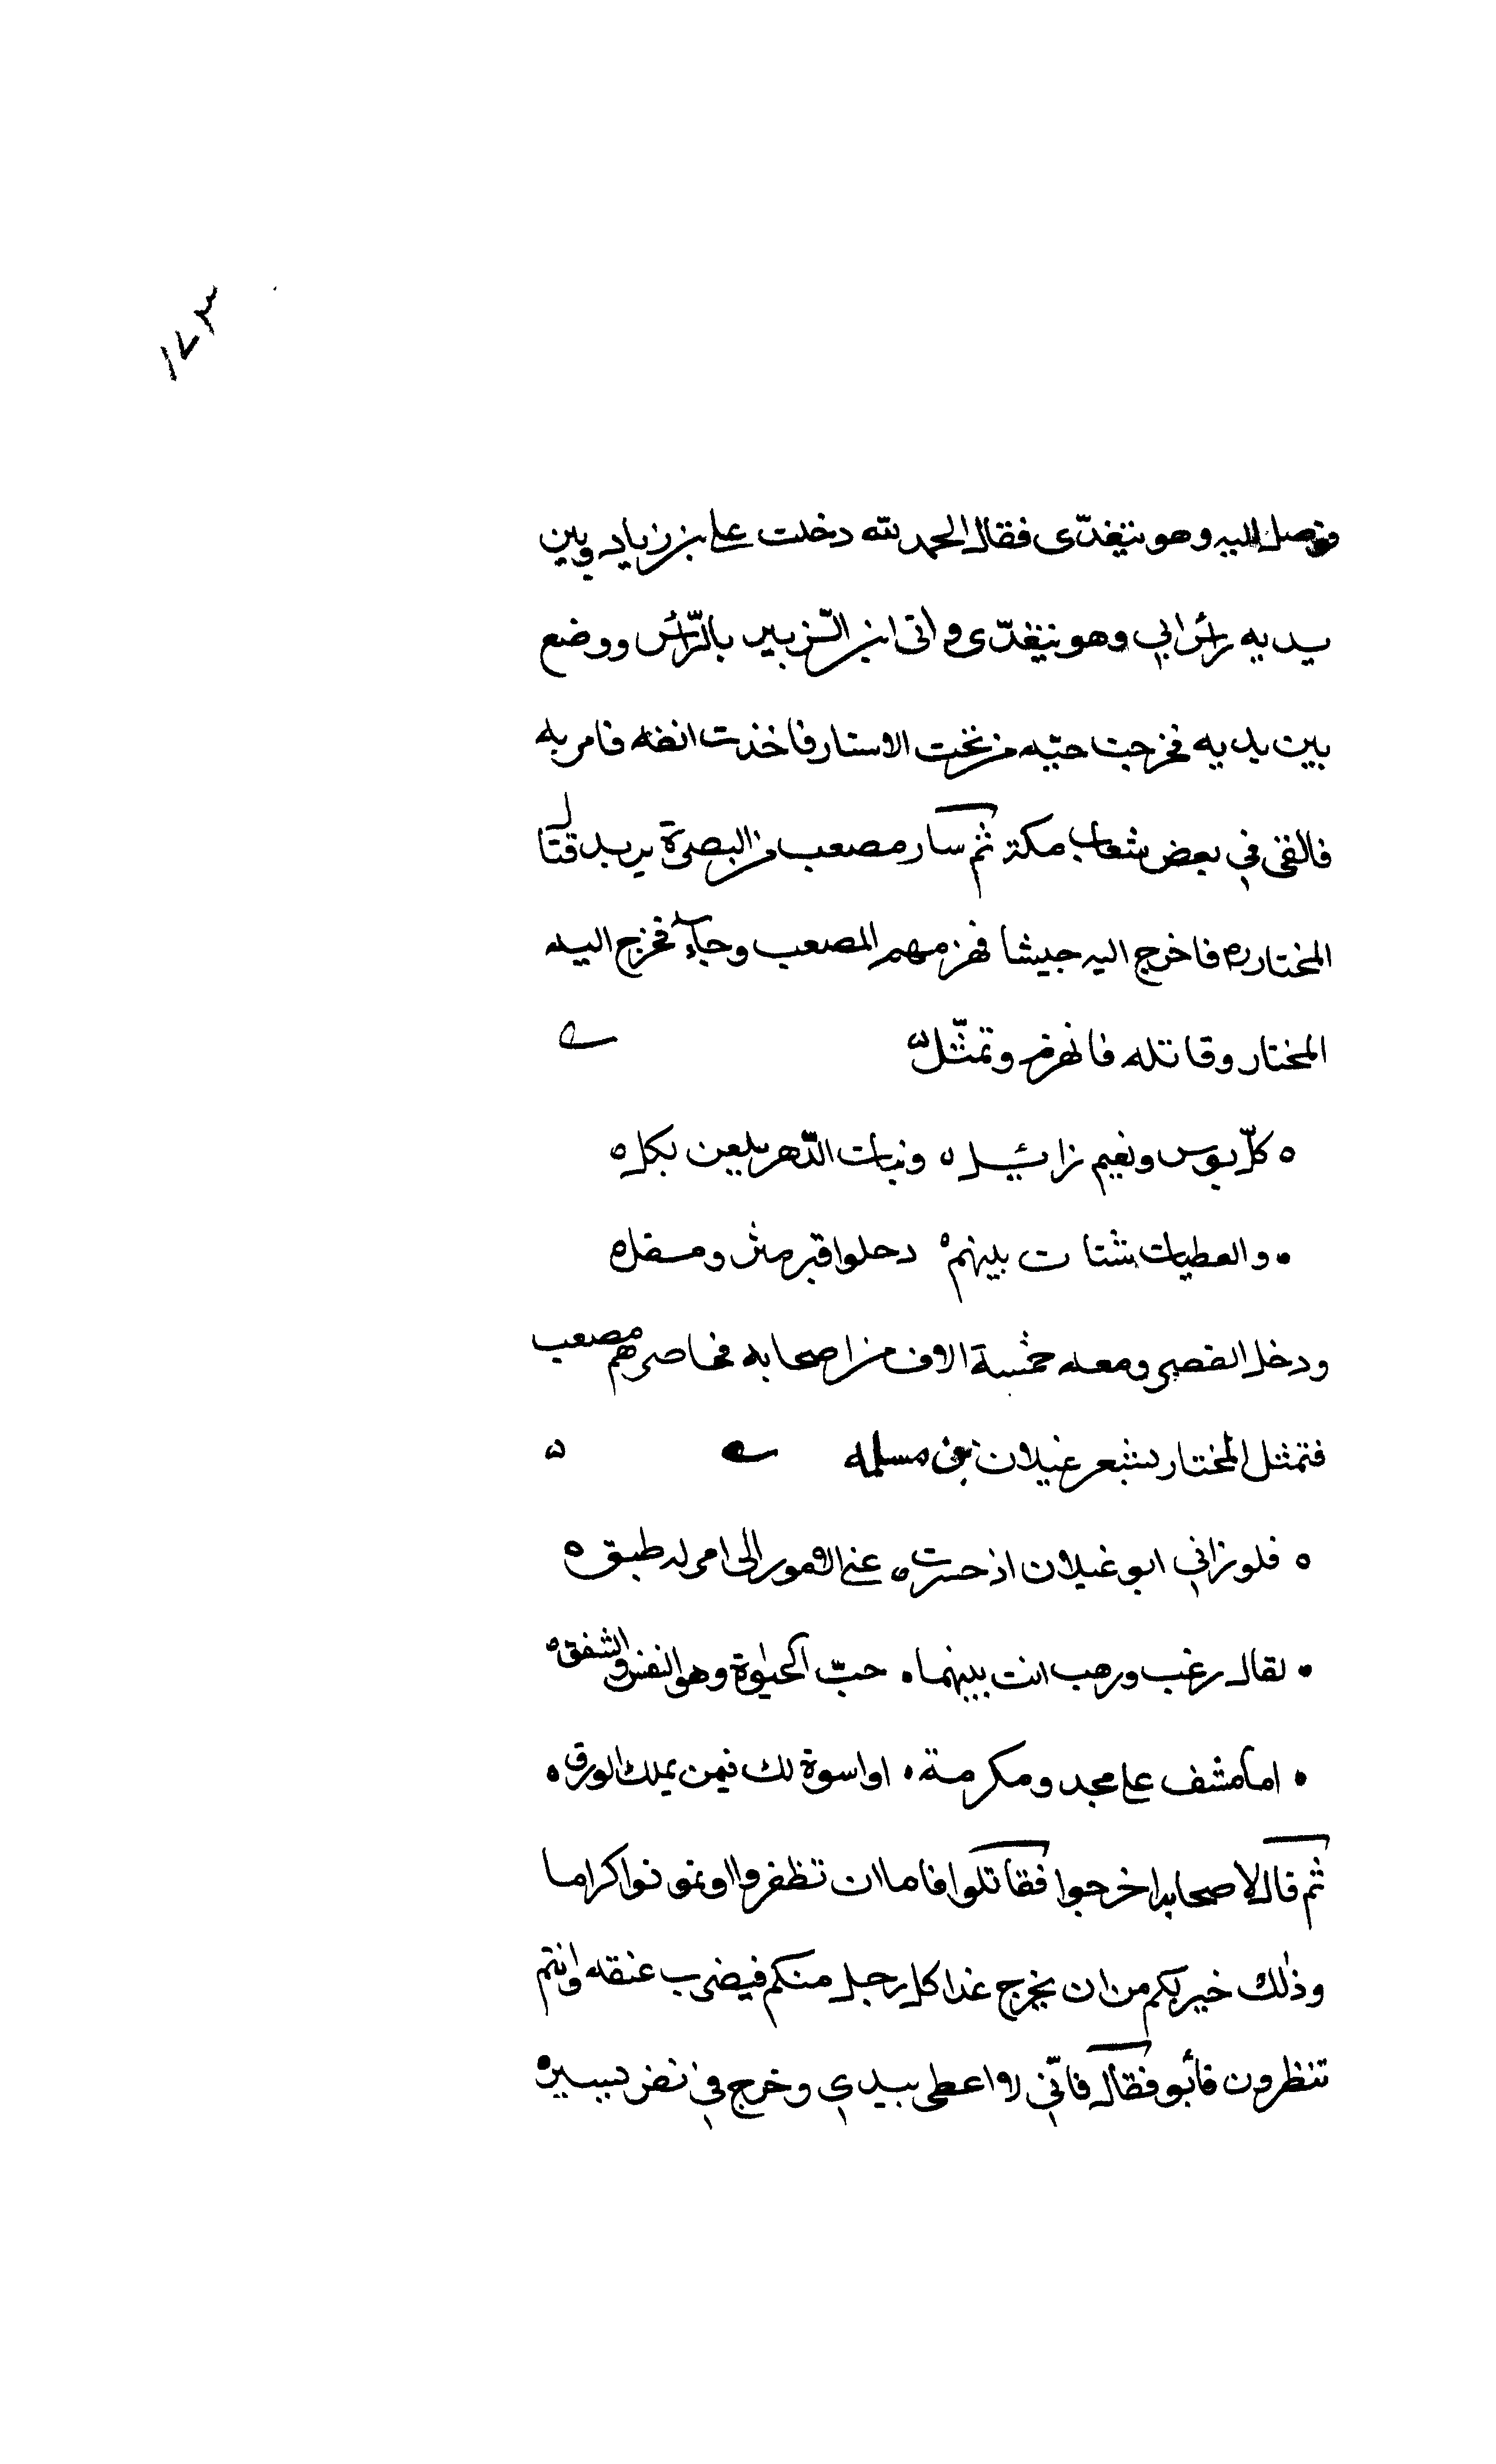 ١٧٣
فوصل اليه وهو يتغدّى فقال الحمد لله دخلت على بن زياد وبين
يديه رأس ابي وهو يتغدّى واتى ابن الزّبير بالرّأس ووضع
بين يديه فخرجت حيّه من تحت الاستار فاخذت انفه فامر به
فالقى في بعض شعاب مكة ثم سار مصعب من البصرة يريد قتال
المختار ره فاخرج اليه جيشا فهزمهم المصعب وجاء فخرج اليه
المختار وقاتله فانهزم وتمثّل
كلّ بوس ونعيم زائيل ونبات الدّهر يلعبن بكل
والعطيات شتات بينهم دخلوا قبر مثر ومقل
ودخل القصر ومعه خمسة الاف من اصحابه فحاصرهم مصعب
فتمثل المختار بشعر غيلان بن مسلمه
فلو رانى ابو غيلان اذ حسرت عنى الامور الى امر له طبق
لقال رغب ورهب انت بينهما حبّ الحيوة وهو النفس والشفق
اما مشف على مجد ومكرمة او اسوة لك فيمن يملك الورق
ثم قال لاصحابه اخرجوا فقاتلوا فاما ان تظفروا او تموتوا كراما
وذلك خير بكم من ان يخرج غدا كل رجل منكم فيضرب عنقه وانتم
تنظرون فأبو فقال فانّي لا اعطى بيدي وخرج في نفر يسير